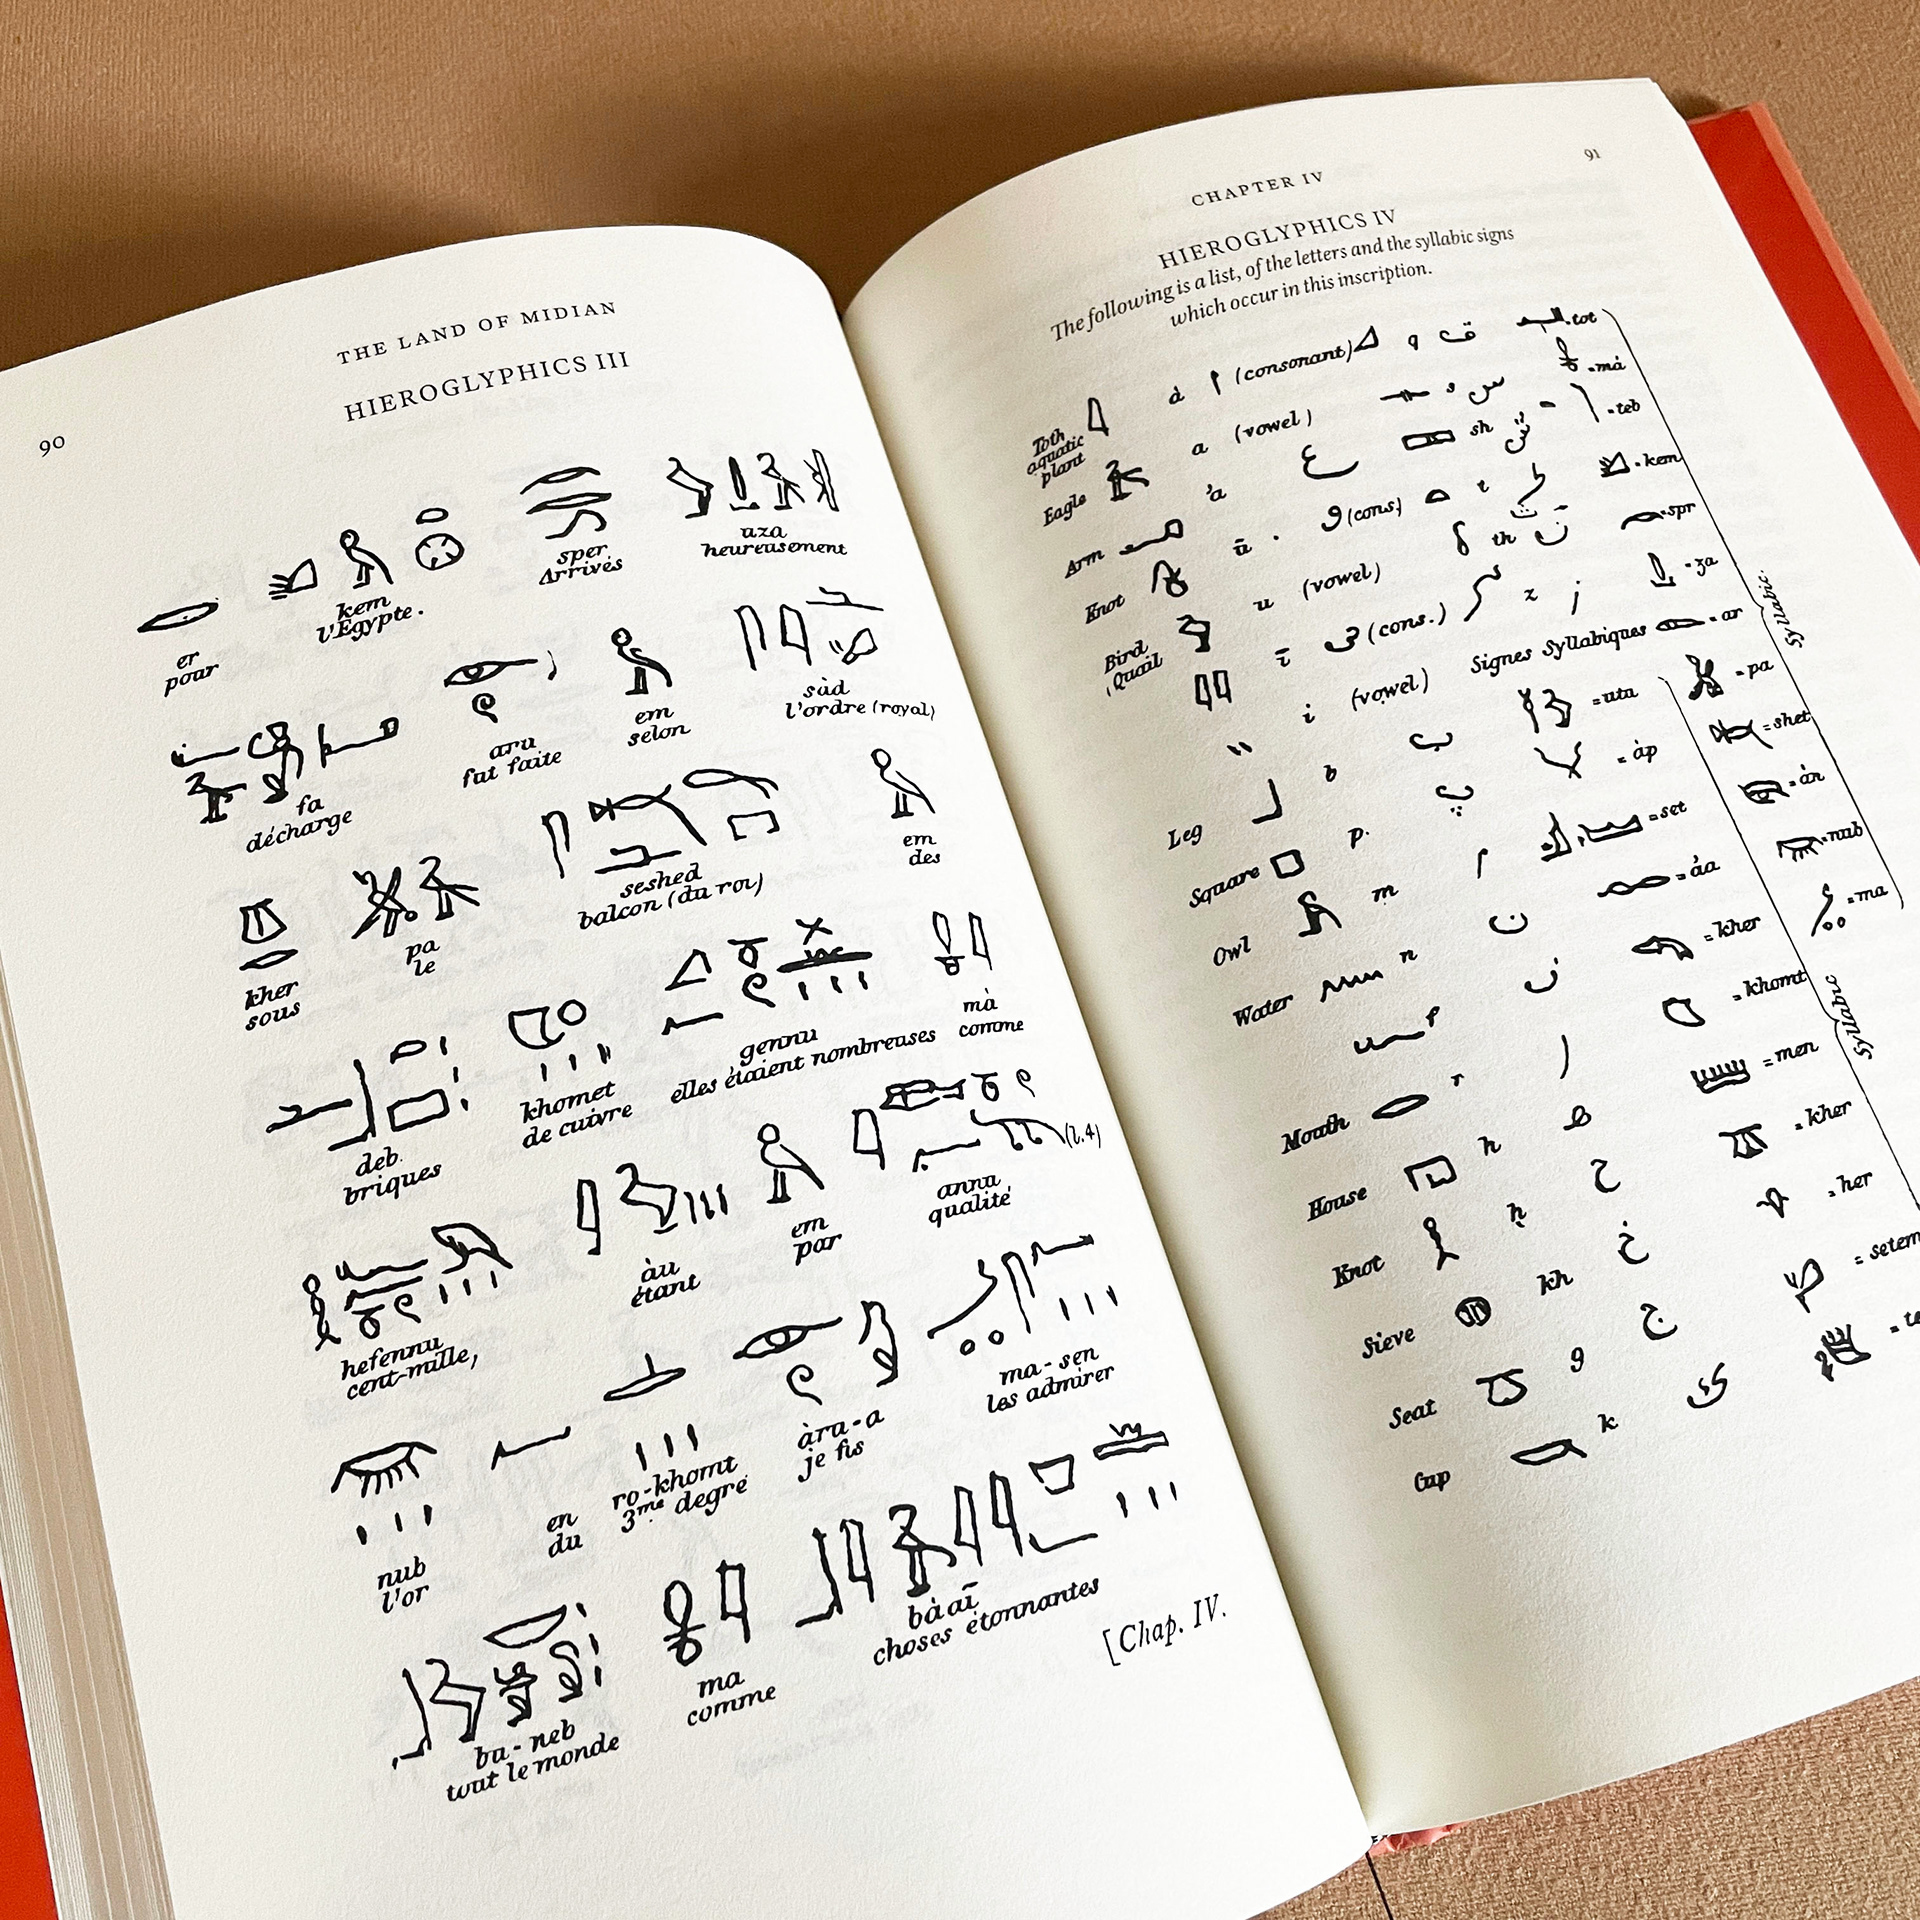 90
THE LAND OF MIDIAN
HIEROGLYPHICS III
er kem sper uza
pour l'Égypte. Arrivés heureusement
fa aru em sàd
décharge fut faite selon l'ordre (royal)
kher pa seshed em
sous le balcon (du roi) des
deb. khomet gennu mà
briques de cuivre elles étaient nombreuses comme
(l.4)
hefennu àu em annu
cent-mille, étant par qualité
nub en ro-khomt àru-a ma-sen
l'or du 3me degre je fis les admirer
bu-neb ma bàaī
tout le monde comme choses étonnantes
[Chap. IV.
91
CHAPTER IV
HIEROGLYPHICS IV
The following is a list, of the letters and the syllabic signs
which occur in this inscription.
Toth aquatic plant (consonant) ق tot
Eagle a (vowel) س mà
Arm 'a ع sh ش teb
Knot ū و (cons.) t kem
Bird Quail u (vowel) th spr
ī ى (cons.) z za
i (vowel) Signes Syllabiques ar
Leg b ب = utu = pa
Square p. پ = àp = shet
Owl m = set = àn
Water n ن = áa = nub
= kher = ma
Mouth r = khomt
House h = men
Knot ḥ ح = kher
Sieve kh خ = her
Seat g ج = setem
Cup k
Syllabic.
Syllabic